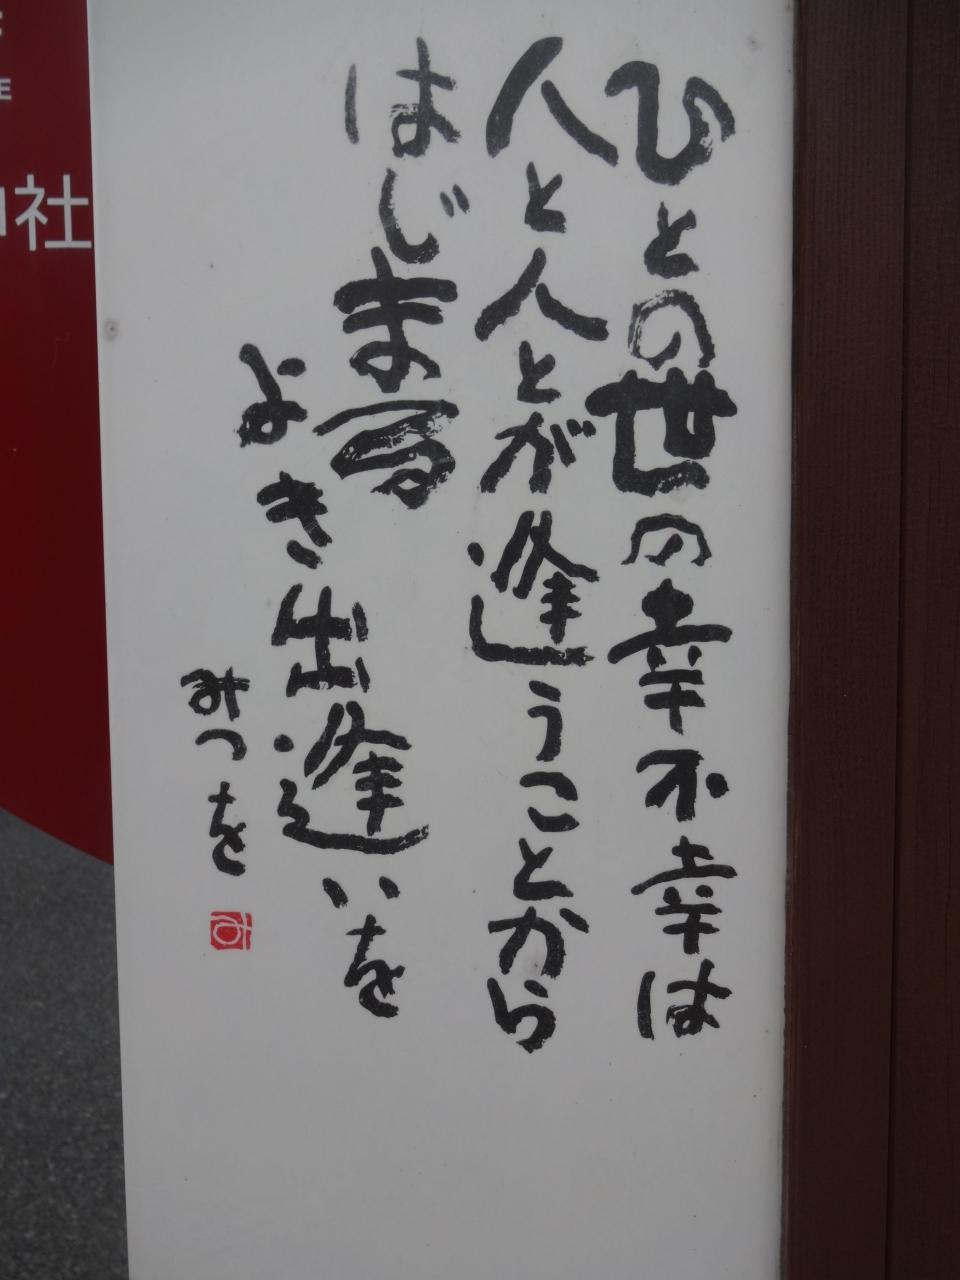 ひとの世の幸不幸は
人と人とが逢うことから
はじまる
よき出逢いを
みつを
み
神社
E